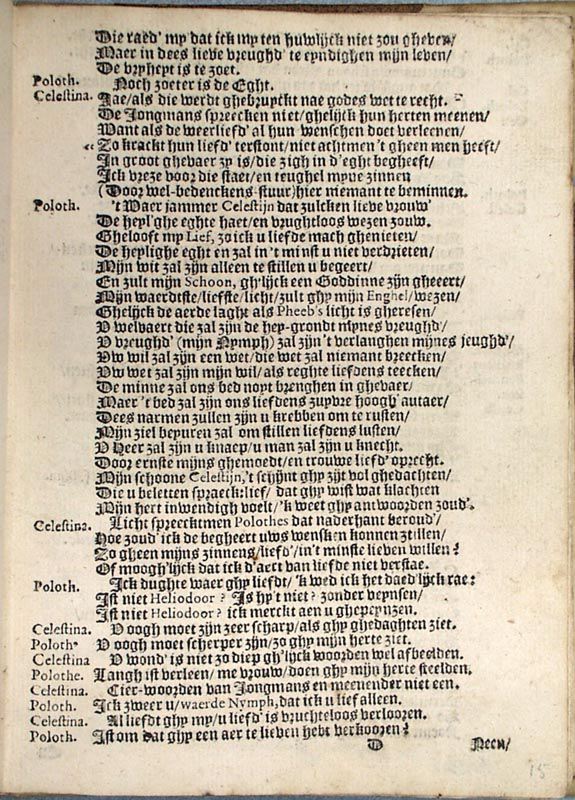 Die raed' my dat ick my ten huwlijck niet zou gheven/
Maer in dees lieve vreughd' te eyndighen mijn leven/
De vryheyt is te zoet.
Poloth. Noch zoeter is de Eght.
Celestina. Jae/als die werdt ghebruyckt nae godes wet te recht.
De Jongmans spreecken niet/ghelijck hun herten meenen/
Want als de weerliefd' al hun wenschen doet verleenen/
Zo krackt hun liefd' terstont/niet achtmen 't gheen men heeft/
In groot ghevaer zy is/die zigh in d'eght begheeft/
Ick vreze voor die staet/en teughel myne zinnen
(Door wel-bedenckens stuur) hier niemant te beminnen.
Poloth. 't Waer jammer Celestijn dat zulcken lieve vrouw'
De heyl'ghe eghte haet/en vrughtloos wezen zouw.
Ghelooft my Lief, zo ick u liefde mach ghenieten/
De heylighe eght en zal in 't minst u niet verdrieten/
Mijn wit zal zijn alleen te stillen u begeert/
En zult mijn Schoon, gh'lijck een Goddinne zijn gheeert/
Mijn waerdtste/liefste/licht/zult ghy mijn Enghel/wezen/
Ghelijck de aerde laght als Pheeb's licht is gheresen/
V welvaert die zal zijn de hey-grondt mynes vreughd'/
V vreughd' (mijn Nymph) zal zijn 't verlanghen mijnes jeughd'/
Uw wil zal zijn een wet/die wet zal niemant breecken/
Uw wet zal zijn mijn wil/als reghte liefdens teecken/
De minne zal ons bed noyt brenghen in ghevaer/
Maer 't bed zal zijn ons liefdens zuyvre hoogh' autaer/
Dees narmen zullen zijn u krebben om te rusten/
Mijn ziel bepuren zal om stillen liefdens lusten/
V Heer zal zijn u knaep/u man zal zijn u knecht.
Door ernste mijns ghemoedt/en trouwe liefd' oprecht.
Mijn schoone Celestijn, 't schijnt ghy zijt vol ghedachten/
Die u beletten spraeck: lief/ dat ghy wist wat klachten
Mijn hert inwendigh voelt/'k weet ghy antwoorden zoud'.
Celestina. Licht spreecktmen Polothes dat naderhant beroud'/
Hoe zoud' ick de begheert uws wensken konnen stillen/
Zo gheen mijns zinnens/liefd'/in 't minste lieven willen?
Of moogh'lijck dat ick d'aert van liefde niet verstae.
Poloth. Ick dughte waer ghy liefdt/ 'k wed ick het daed'lijck rae:
Ist niet Heliodoor? Is hy't niet? zonder veynsen/
Ist niet Heliodoor? ick merckt aen u ghepeynzen.
Celestina. V oogh moet zijn zeer scherp/als ghy ghedaghten ziet.
Poloth. V oogh moet scherper zijn/zo ghy mijn herte ziet.
Celestina V wond' is niet zo diep gh'lijck woorden wel afbeelden.
Polothe. Langh ist verleen/ me vrouw/doen ghy mijn herte steelden.
Celestina. Cier-woorden van Jongmans en meenender niet een.
Poloth. Ick zweer u/waerde Nymph, dat ick u lief alleen.
Celestina. Al liefdt ghy my/u liefd' is vruchteloos verlooren.
Poloth. Ist om dat ghy een aer te lieven hebt verkooren?
D Neen/
15